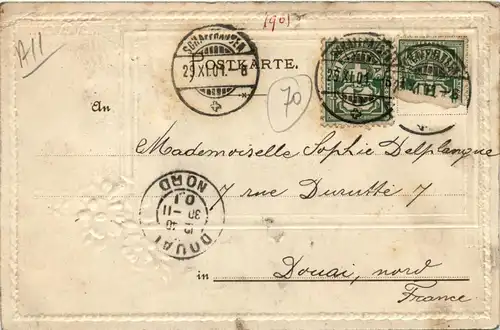 1901
A11
SCHAFFHAUSEN
29.XI.01.-8
POSTKARTE.
SCHAFFHAUSEN
29.XI.01.
70
An
Mademoiselle Sophie Delplanque
7 rue Durutte 7
DOUAI
NORD
30 - 11
01
in Douai, nord
France